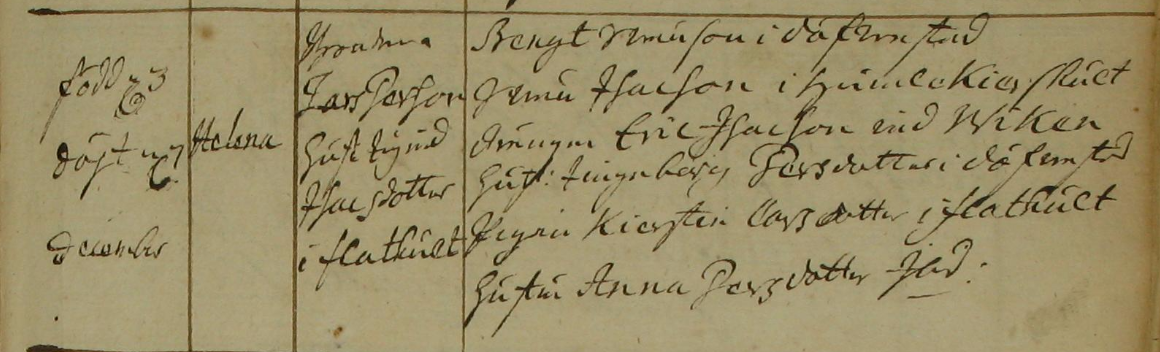 född 23
döpt 27
december
Helena
Bonden
Lars Person
hust Ingrid
Isacsdotter
i flathult
Bengt Jonuson i dåfemstad
Isacson i humlekiershult
drängen Eric Isacson vid Wiken
hust: Ingeborg Persdotter i dåfemstad
Pigan Kierstin Larsdotter i flathult
hustru Anna Persdotter Ibid.